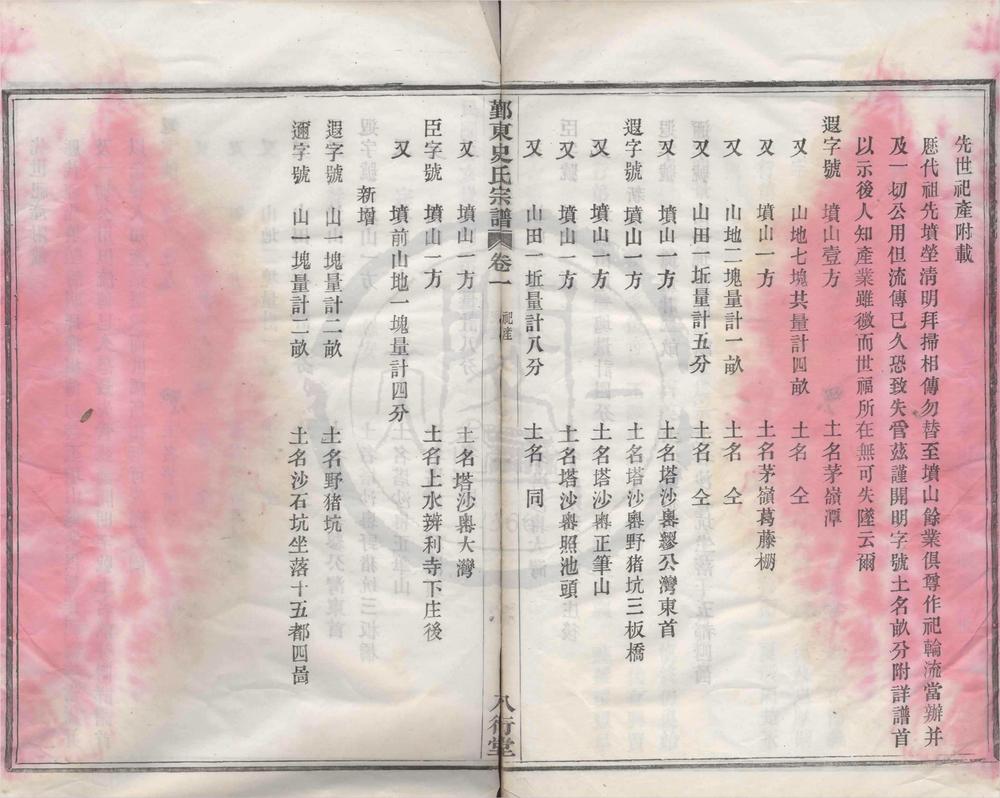 先世祀產附載
歷代祖先墳塋淸明拜掃相傳勿替至墳山餘業俱尊作祀輪流當辦并
及一切公用但流傳已久恐致失管茲謹開明字號土名畝分附詳譜首
以示後人知產業雖微而世福所在無可失墜云爾
遐字號 墳山壹方 土名茅嶺潭
又 山地七塊共量計四畝 土名 仝
又 墳山一方 土名茅嶺葛藤棚
又 山地二塊量計一畝 土名 仝
又 山田一坵量計五分 土名 仝
又 墳山一方 土名塔沙嶴繆公灣東首
遐字號 墳山一方 土名塔沙嶴野猪坑三板橋
又 墳山一方 土名塔沙嶴正筆山
又 墳山一方 土名塔沙嶴照池頭
又 山田一坵量計八分 土名 同
鄞東史氏宗譜 卷一 祀產 八行堂
又 墳山一方 土名塔沙嶴大灣
臣字號 墳山一方 土名上水辨利寺下庄後
又 墳前山地一塊量計四分
新增
遐字號 山一塊量計二畝 土名野猪坑
邇字號 山一塊量計二畝 土名沙石坑坐落十五都四啚